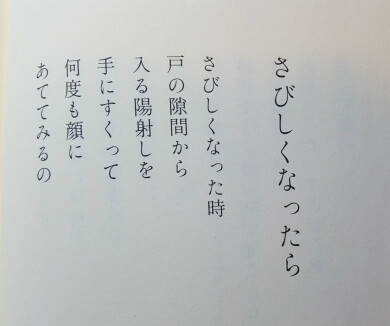 さびしくなったら
さびしくなった時
戸の隙間から
入る陽射しを
手にすくって
何度も顔に
あててみるの